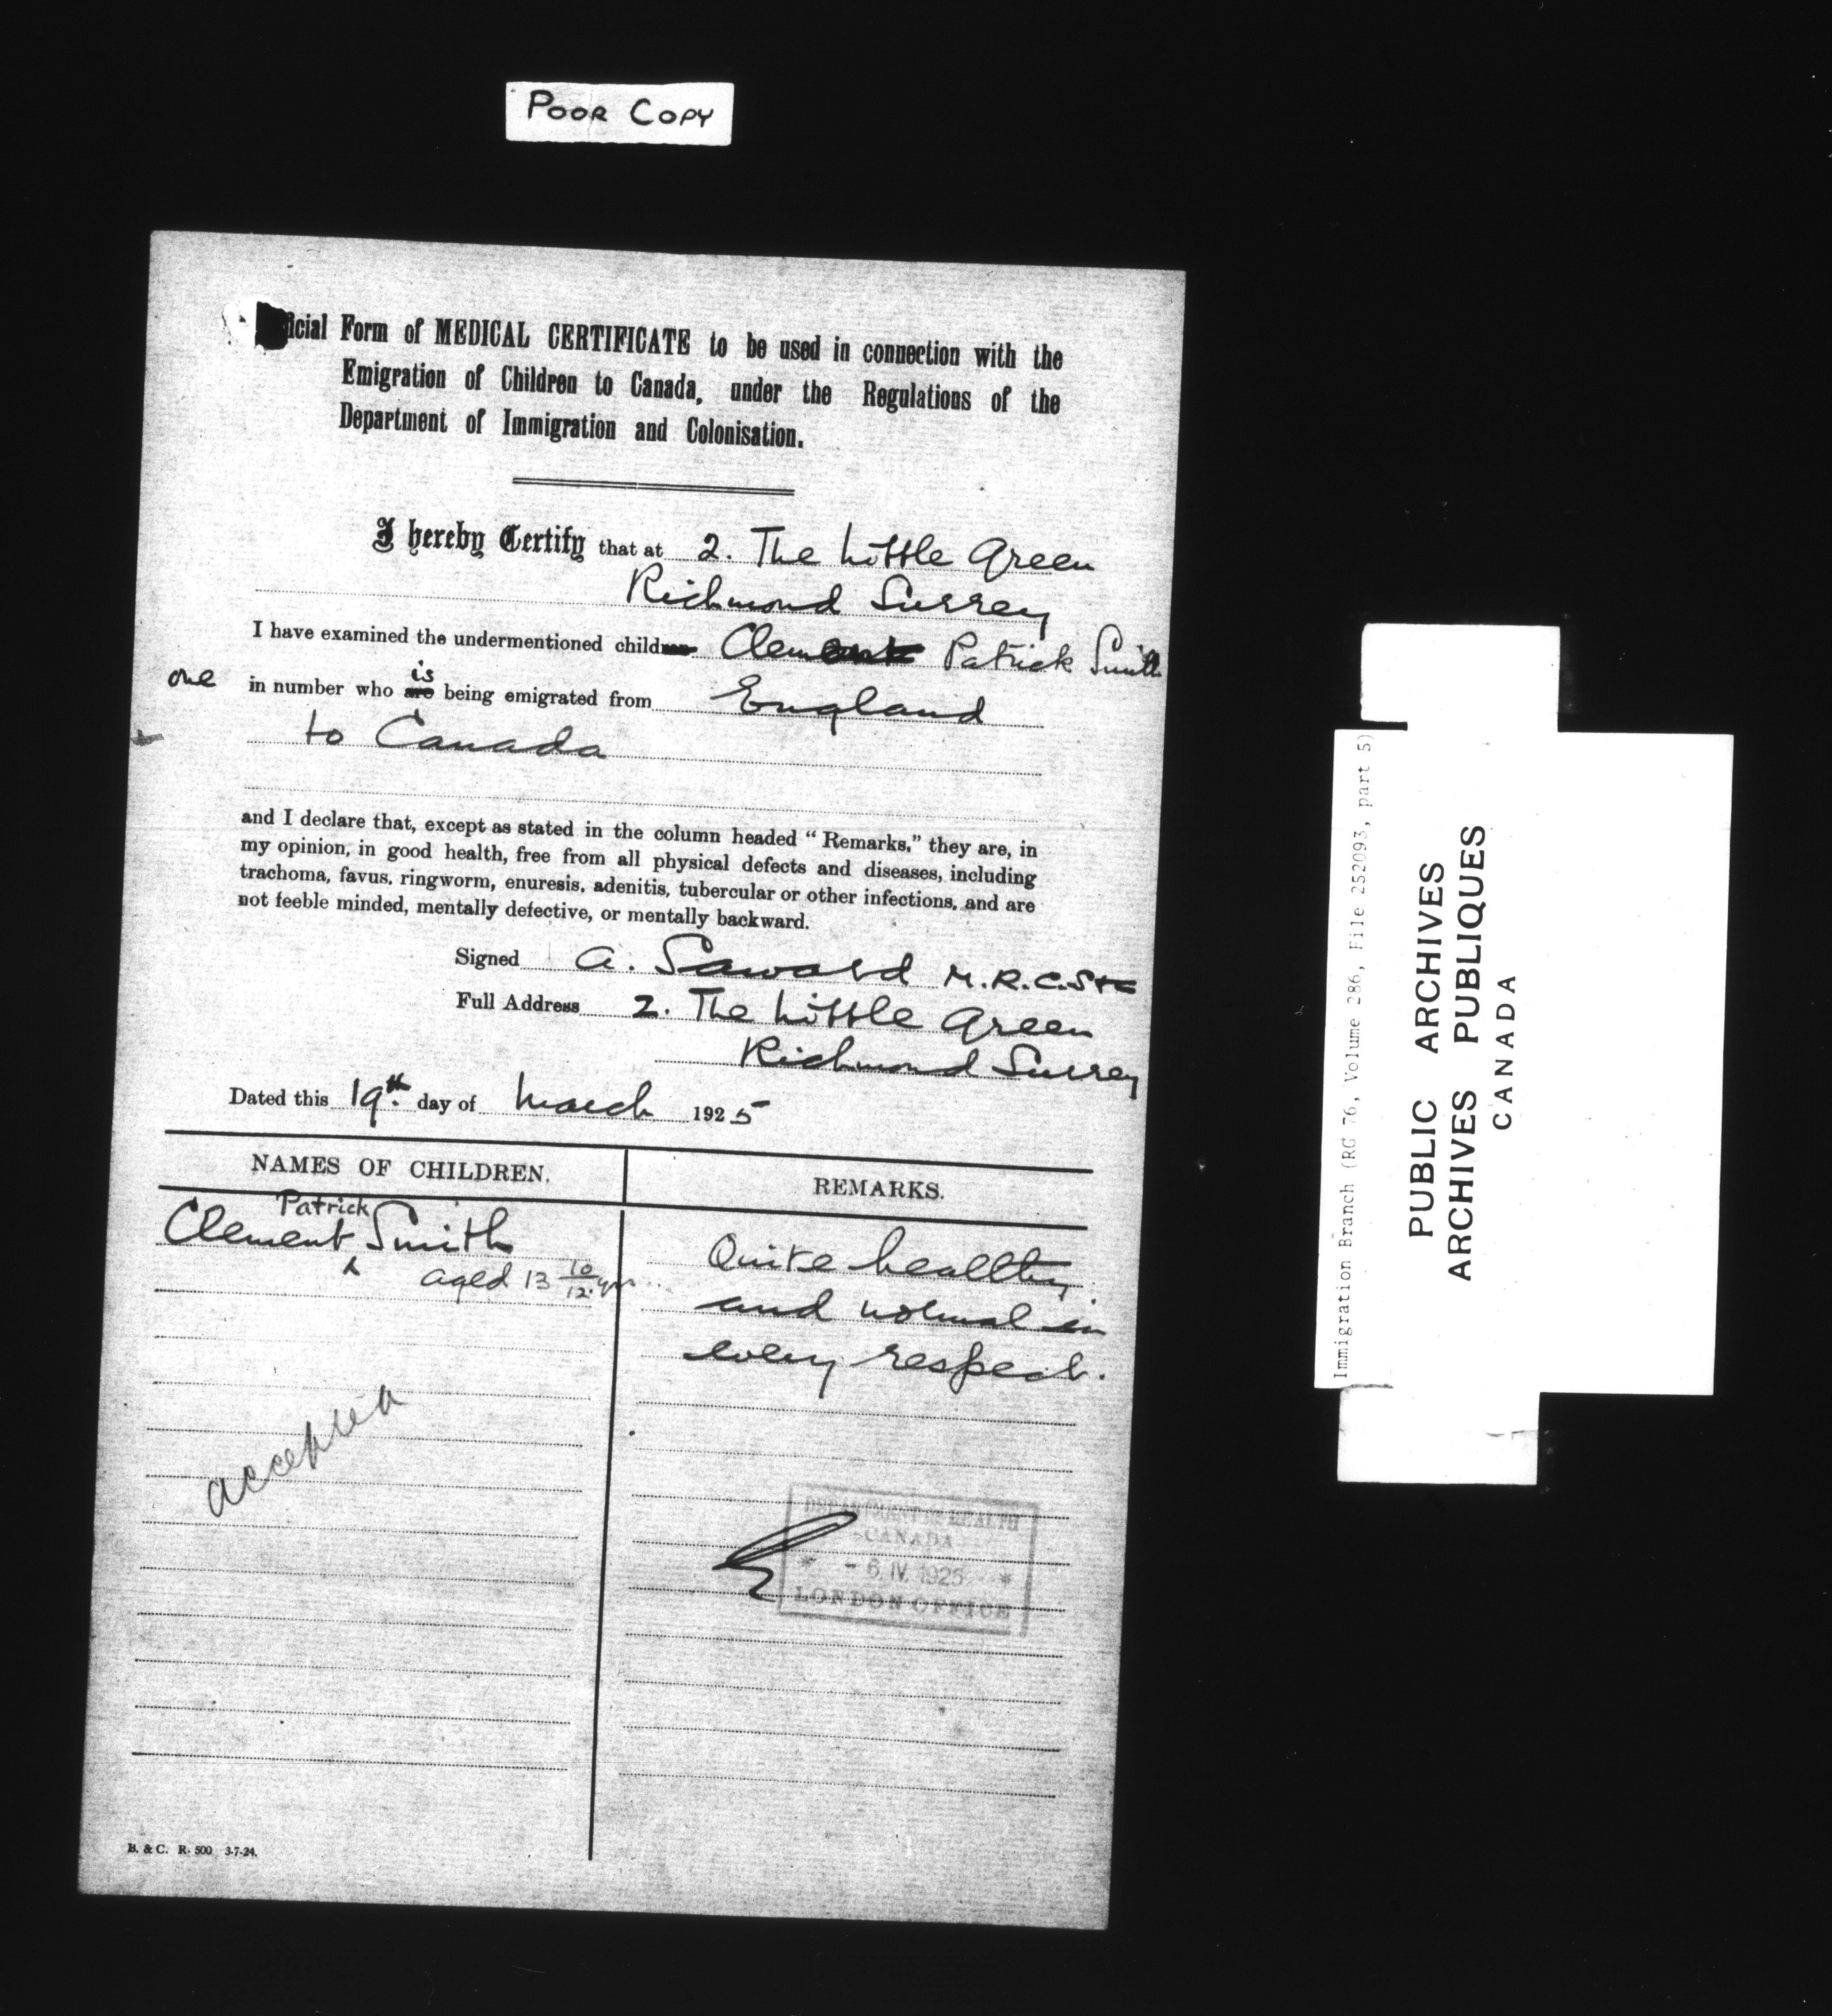 POOR COPY
icial Form of MEDICAL CERTIFICATE to be used in connection with the
Emigration of Children to Canada, under the Regulations of the
Department of Immigration and Colonisation.
I hereby Certify that at 2. The Little Green
Richmond Surrey
I have examined the undermentioned child Clement Patrick Smith
one in number who is are being emigrated from England
to Canada
and I declare that, except as stated in the column headed “Remarks,” they are, in
my opinion, in good health, free from all physical defects and diseases, including
trachoma, favus, ringworm, enuresis, adenitis, tubercular or other infections, and are
not feeble minded, mentally defective, or mentally backward.
Signed A. Saward M.R.C.S
Full Address 2. The Little Green
Richmond Surrey
Dated this 19th. day of March 1925
NAMES OF CHILDREN.
REMARKS.
Patrick
Clement Smith
aged 13 10/12 yrs
Quite healthy
and normal in
every respect.
accepted
DEPARTMENT OF HEALTH
CANADA
* - 6 IV. 1925 *
LONDON OFFICE
B. & C. R. 500 3-7-24.
Immigration Branch (RG 76, Volume 286, File 252093, part 5)
PUBLIC ARCHIVES
ARCHIVES PUBLIQUES
CANADA